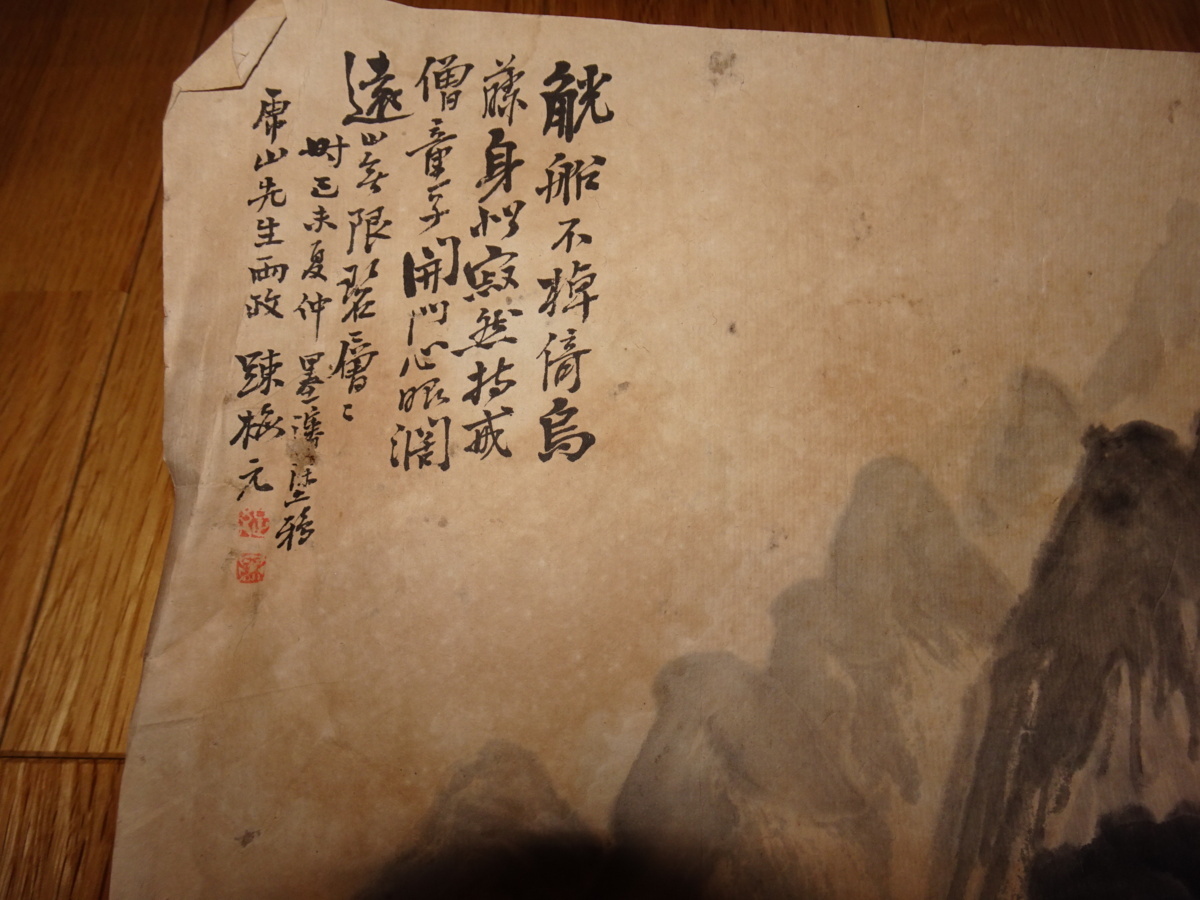 觥船不掉倚烏
藤身似寂然持戒
僧童子開門心眼濶
遠山無限碧層〻
時己未夏仲墨瀋塗鴉
席山先生兩政 陳梅元